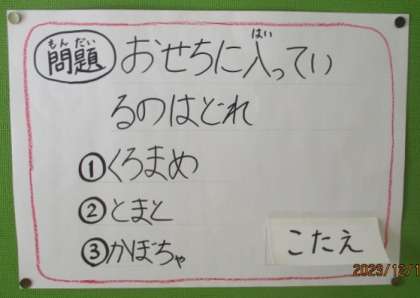 もんだい
問題
はい
おせちに入ってい
るのはどれ
①くろまめ
②とまと
③かぼちゃ
こたえ